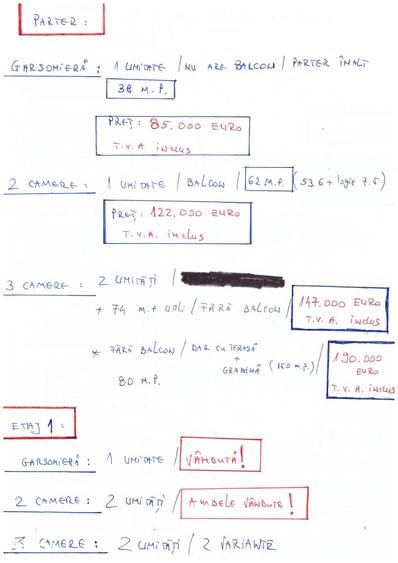 PARTER :
GARSONIERĂ : 1 UNITATE / NU ARE BALCON / PARTER ÎNALT
38 M.P.
PREȚ : 85.000 EURO
T.V.A inclus
2 CAMERE : 1 UNITATE / BALCON / 62 M.P. (53.6 + logie 7.5)
PREȚ : 122.000 EURO
T.V.A. inclus
3 CAMERE : 2 UNITĂȚI /
* 74 M.P UTILI / FĂRĂ BALCON / 147.000 EURO
T.V.A. inclus
* FĂRĂ BALCON / DAR CU TERASĂ + GRĂDINĂ (150 M.P.) / 190.000 EURO
80 M.P.
T.V.A inclus
ETAJ 1 :
GARSONIERĂ : 1 UNITATE / VÂNDUTĂ!
2 CAMERE : 2 UNITĂȚI / AMBELE VÂNDUTE!
3 CAMERE : 2 UNITĂȚI / 2 VARIANTE